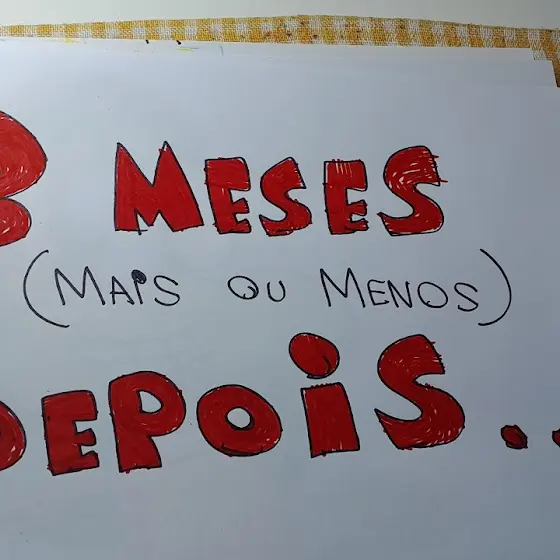 MESES
(MAIS OU MENOS)
DEPOIS..